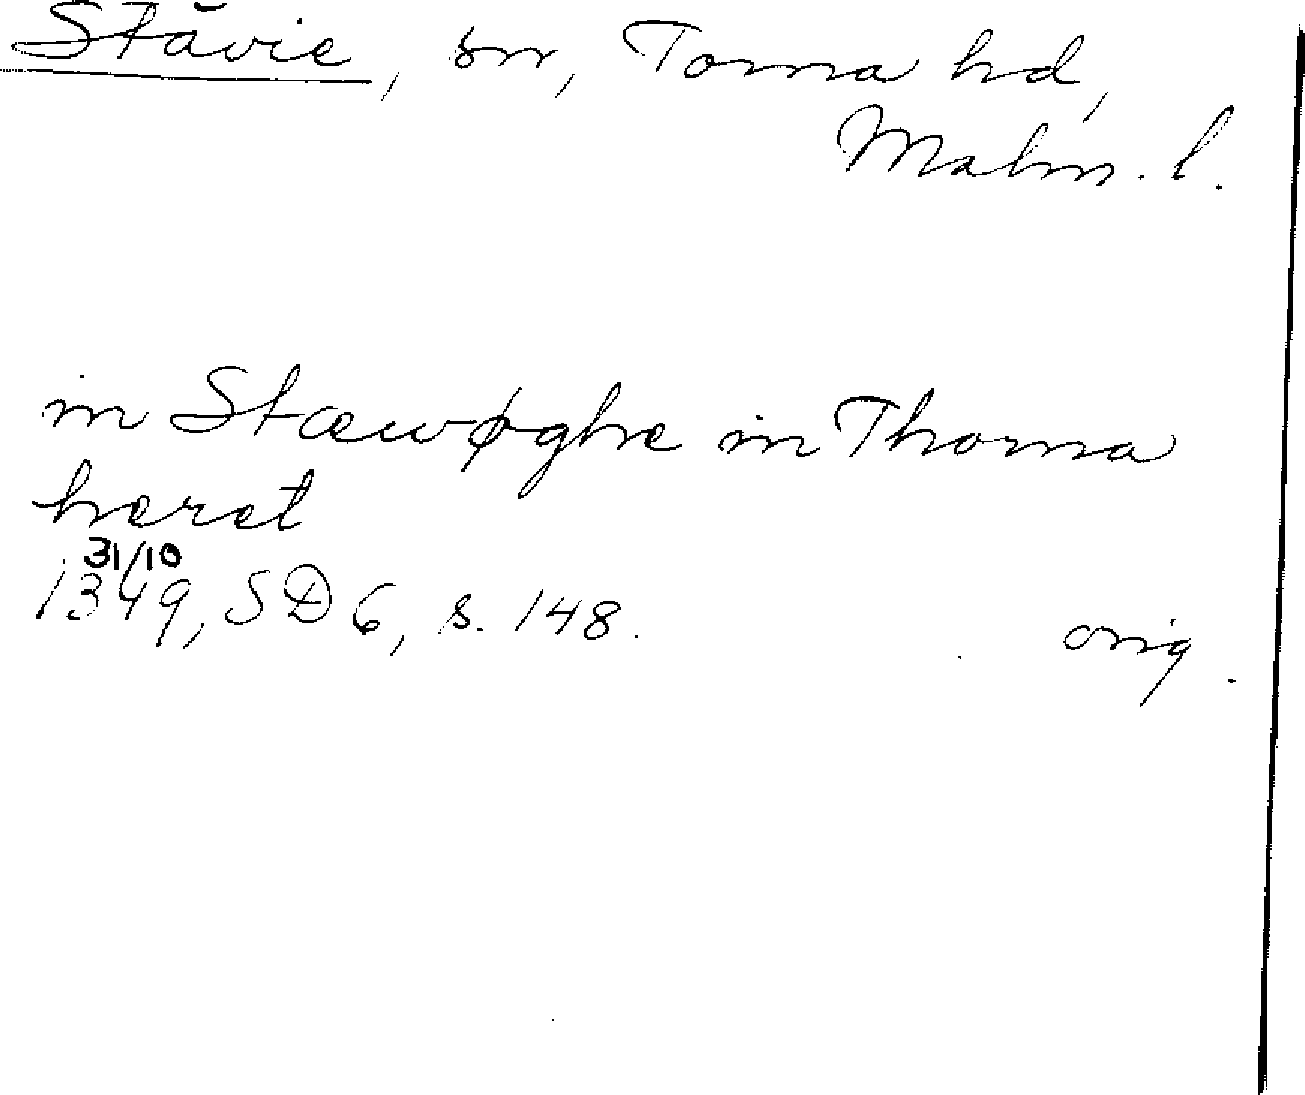 Stävie, sn, Torna hd,
Malm. l.
in Stæwøghe in Thorna
heret
31/10
1349, SD 6, s. 148.
orig.